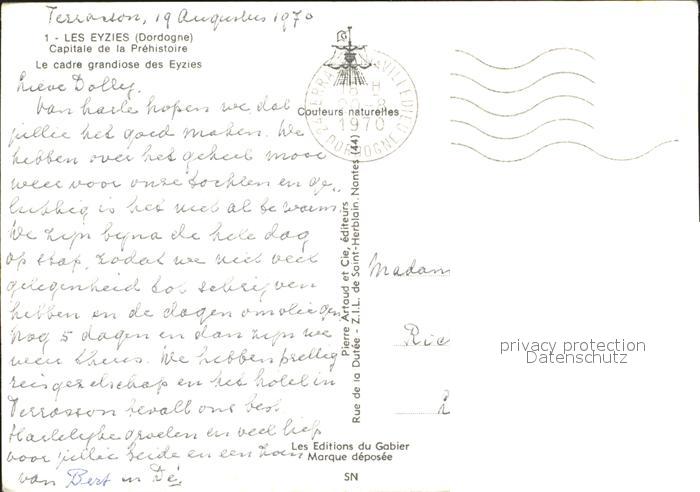 Terrasson, 19 Augustus 1970
1 - LES EYZIES (Dordogne)
Capitale de la Préhistoire
Le cadre grandiose des Eyzies
Lieve Dolly,
Van harte hopen we dat
jullie het goed maken. We
hebben over het geheel mooi
weer voor onze tochten en ge-
lukkig is het niet al te warm.
We zijn bijna de hele dag
op stap, zodat we niet veel
gelegenheid tot schrijven
hebben en de dagen omvliegen
Nog 5 dagen en dan zijn we
weer thuis. We hebben prettig
reisgezelschap en het hotel in
Terrasson bevalt ons best
Hartelijke groeten en veel liefs
voor jullie beide en een zoen
van Bert en Dé.
Couleurs naturelles
18 H
20-8
1970
24 DORDOGNE
Pierre Artaud et Cie, éditeurs
Rue de la Dutée - Z.I.L. de Saint-Herblain. Nantes (44)
Madam
Ric
privacy protection
Datenschutz
Les Editions du Gabier
Marque déposée
SN